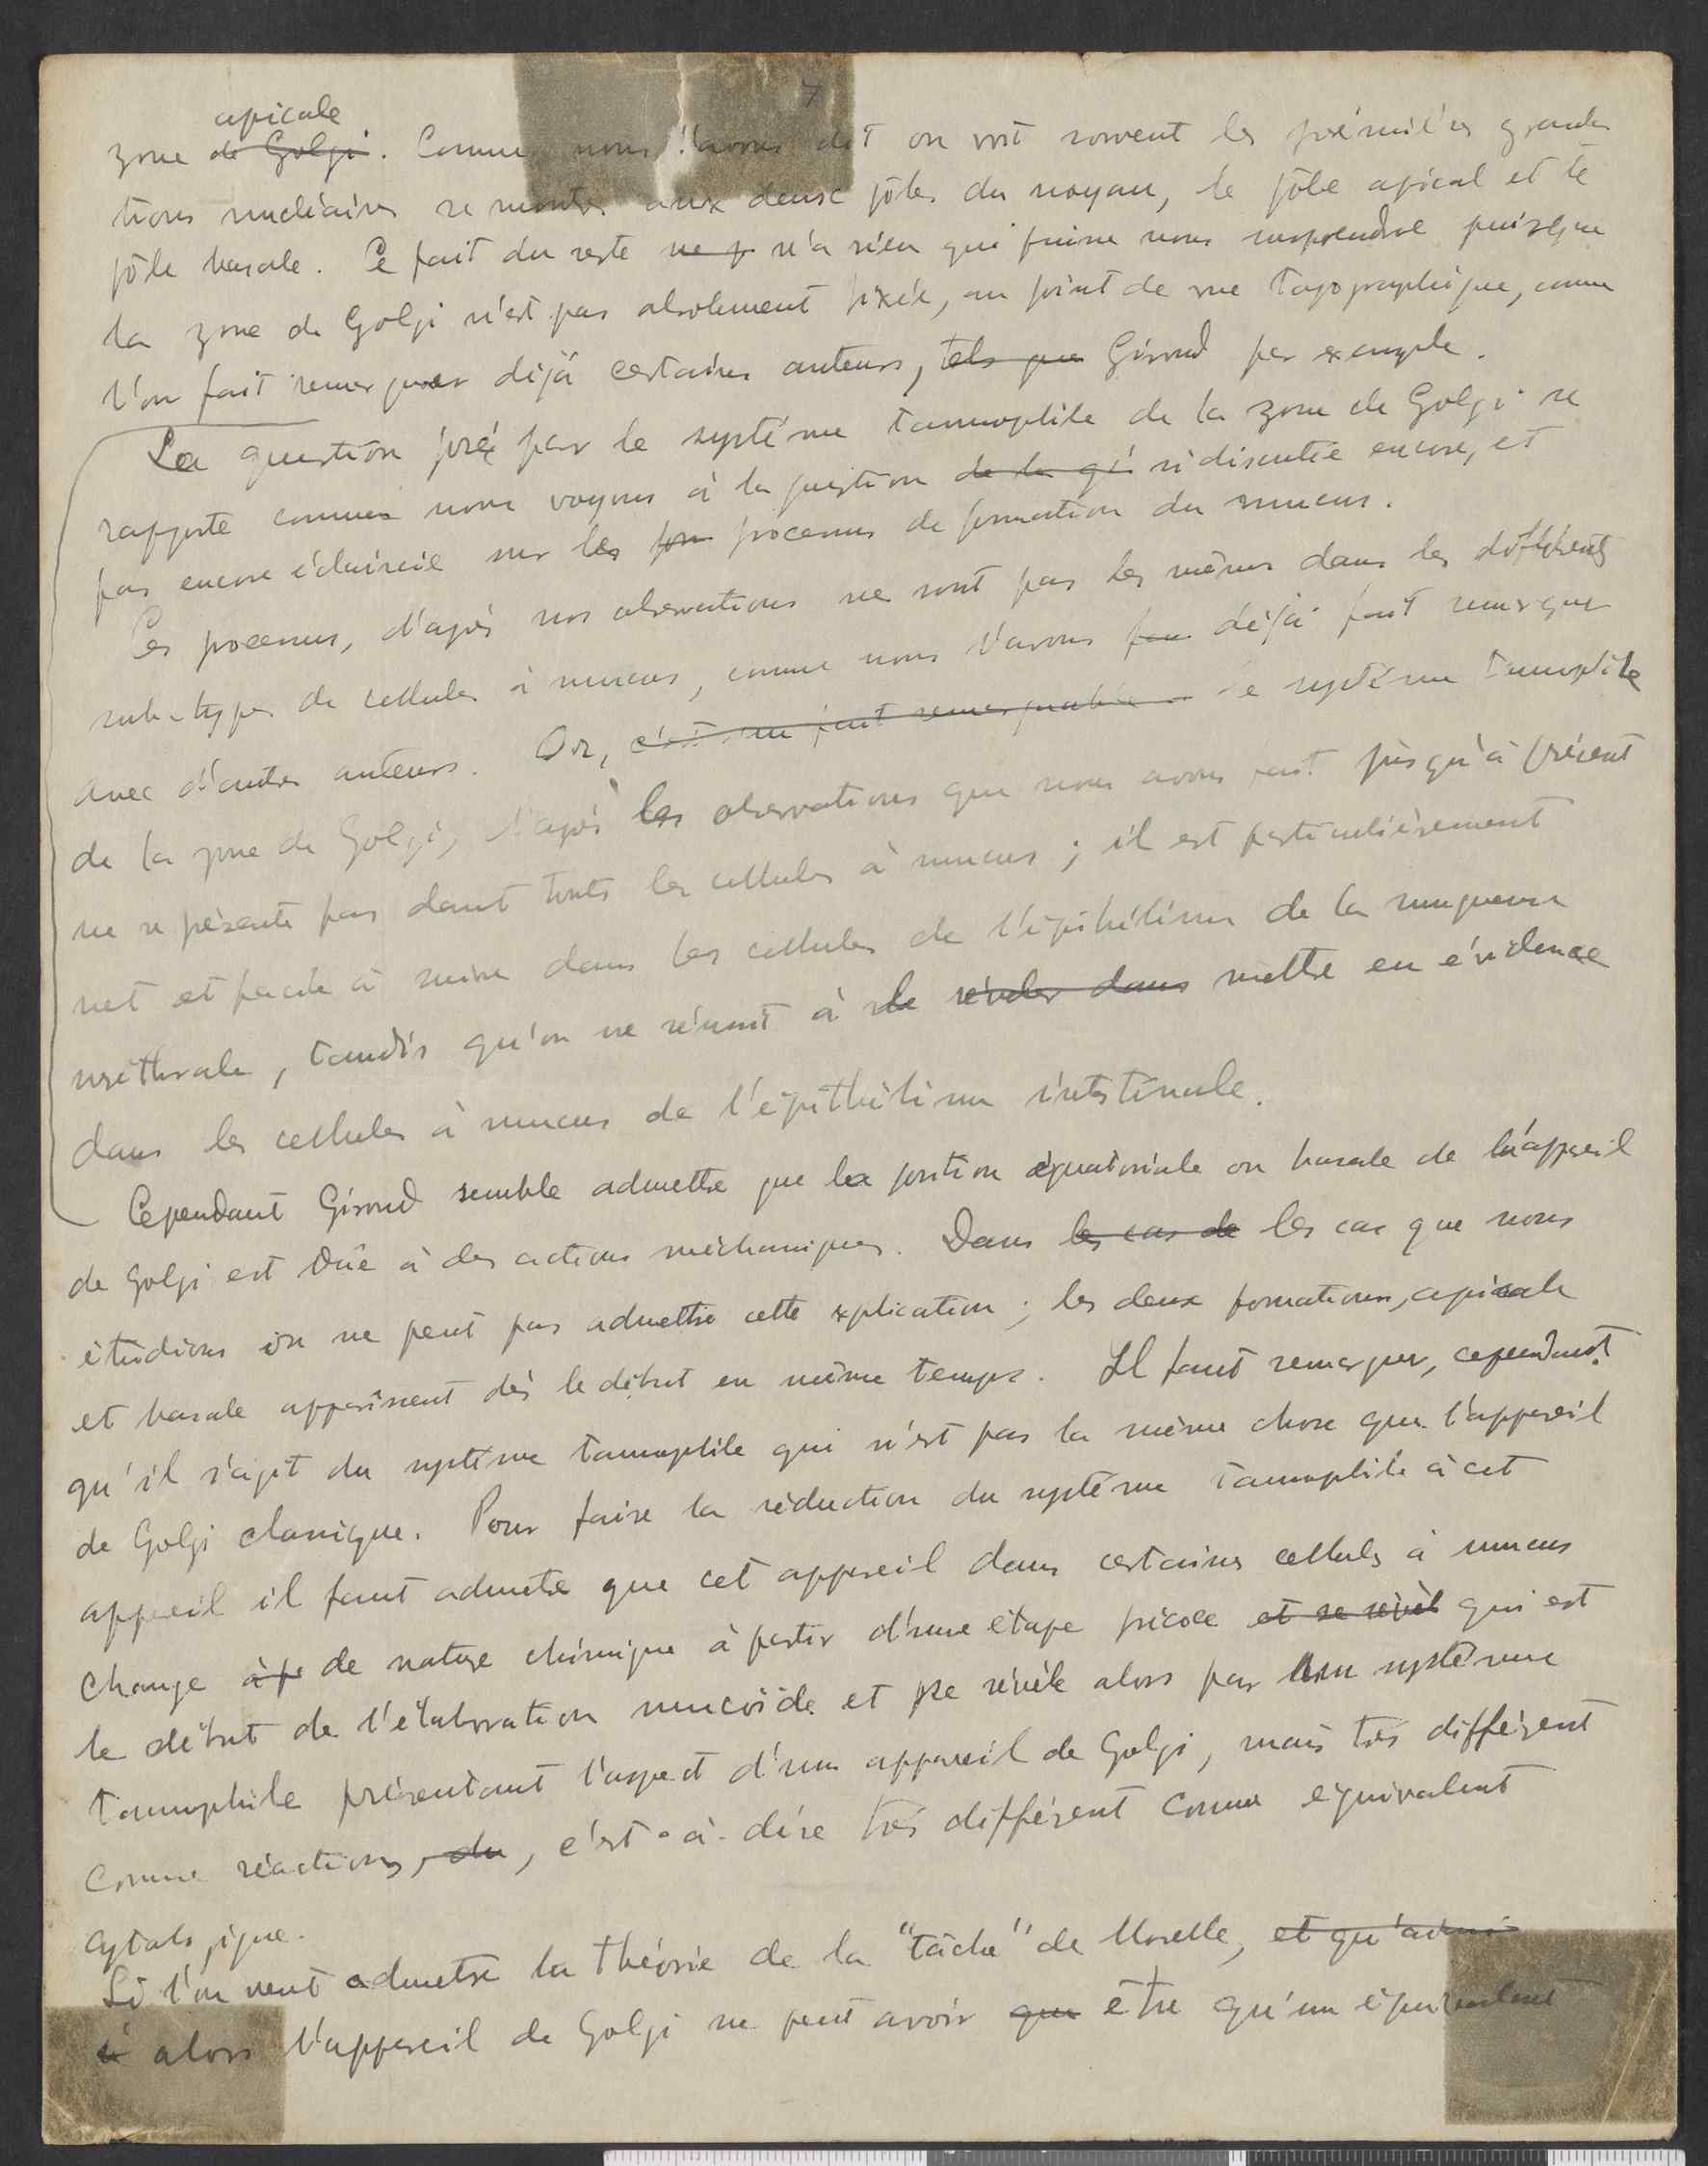 7
apicale
zone de Golgi. Comme nous l'avons dit on voit souvent les prémières granula
tions nucléaires se montrer aux deux pôles du noyau, le pôle apical et le
pôle basale. Ce fait du reste ne p n'a rien qui puisse nous surprendre puisque
la zone de Golgi n'est pas absolument fixée, au point de vue topographique, comme
l'on fait remarquer déjà certains auteurs, tels que Giroud par exemple.
La question posé par le système tannophile de la zone de Golgi se
rapporte comme nous voyons à la question de la qé si discutée encore, et
pas encore éclaircie sur les pro processus de formation du mucus.
Ces processus, d'après nos observations ne sont pas les mêmes dans les différents
sub-types de cellules à mucus, comme nous l'avons déjà fait remarquer
avec d'autres auteurs. Or, c'est un fait remarquable le système tannophile
de la zone de Golgi, d'après les observations que nous avons fait jusqu'à présent
ne se présente pas dant touts les cellules à mucus ; il est particulièrement
net et facile à suivre dans les cellules de l'épithélium de la muqueuse
uréthrale, tandis qu'on ne réussit à le révéler dans mettre en évidence
dans les cellules à mucus de l'épithélium intestinale.
Cependant Giroud semble admettre que la position équatoriale ou basale de l'appareil
de Golgi est dûe à des actions méchaniques. Dans les cas de les cas que nous
étudions on ne peut pas admettre cette explication ; les deux formations, apicale
et basale apparissent dès le début en même temps. Il faut remarquer, cependant
qu'il s'agit du système tannophile qui n'est pas la même chose que l'appareil
de Golgi classique. Pour faire la réduction du système tannophile à cet
appareil il faut admetre que cet appareil dans certaines cellules à mucus
change à p de nature chimique à partir d'une étape précoce et se révèl qui est
le début de l'élaboration mucoïde et se révèle alors par un système
tannophile présentant l'aspect d'un appareil de Golgi, mais très différent
comme réactions, du, c'est-à-dire très différent comme équivalent
cytologique.
Si l'on veut admetre la théorie de la "tâche" de Morelle, et qu'admi
si alors l'appareil de Golgi ne peut avoir que être qu'un équivalent